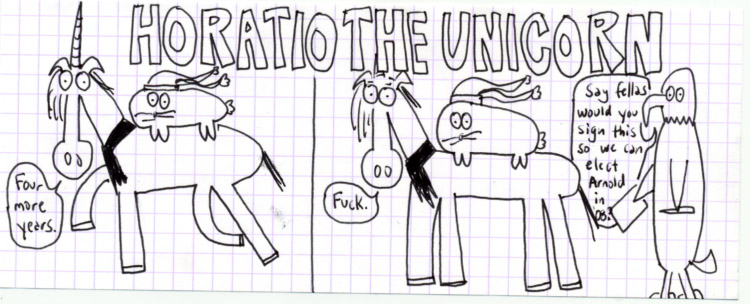 HORATIO THE UNICORN
Four
more
years.
Fuck.
Say fellas
would you
sign this
so we can
elect
Arnold
in
08?